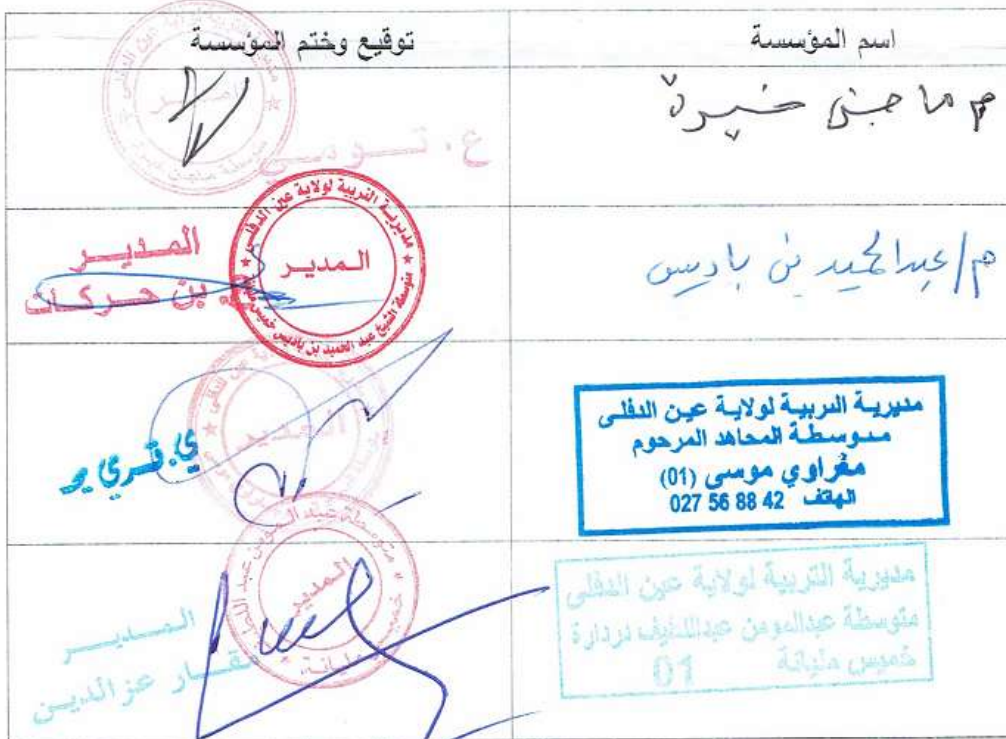 اسم المؤسسة
توقيع وختم المؤسسة
م ماجني خيرة
المدير
ع. تونسي
م/عبد الحميد بن باديس
مديرية التربية لولاية عين الدفلى
متوسطة الشيخ عبد الحميد بن باديس خميس
المدير
المدير
بن حركات
مديرية التربية لولاية عين الدفلى
متوسطة المجاهد المرحوم
مغراوي موسى (01)
الهاتف 027 56 88 42
المدير
مديرية التربية لولاية عين الدفلى
متوسطة عبدالمومن عبداللطيف دردارة
خميس مليانة 01
المدير
المدير
مقار عزالدين